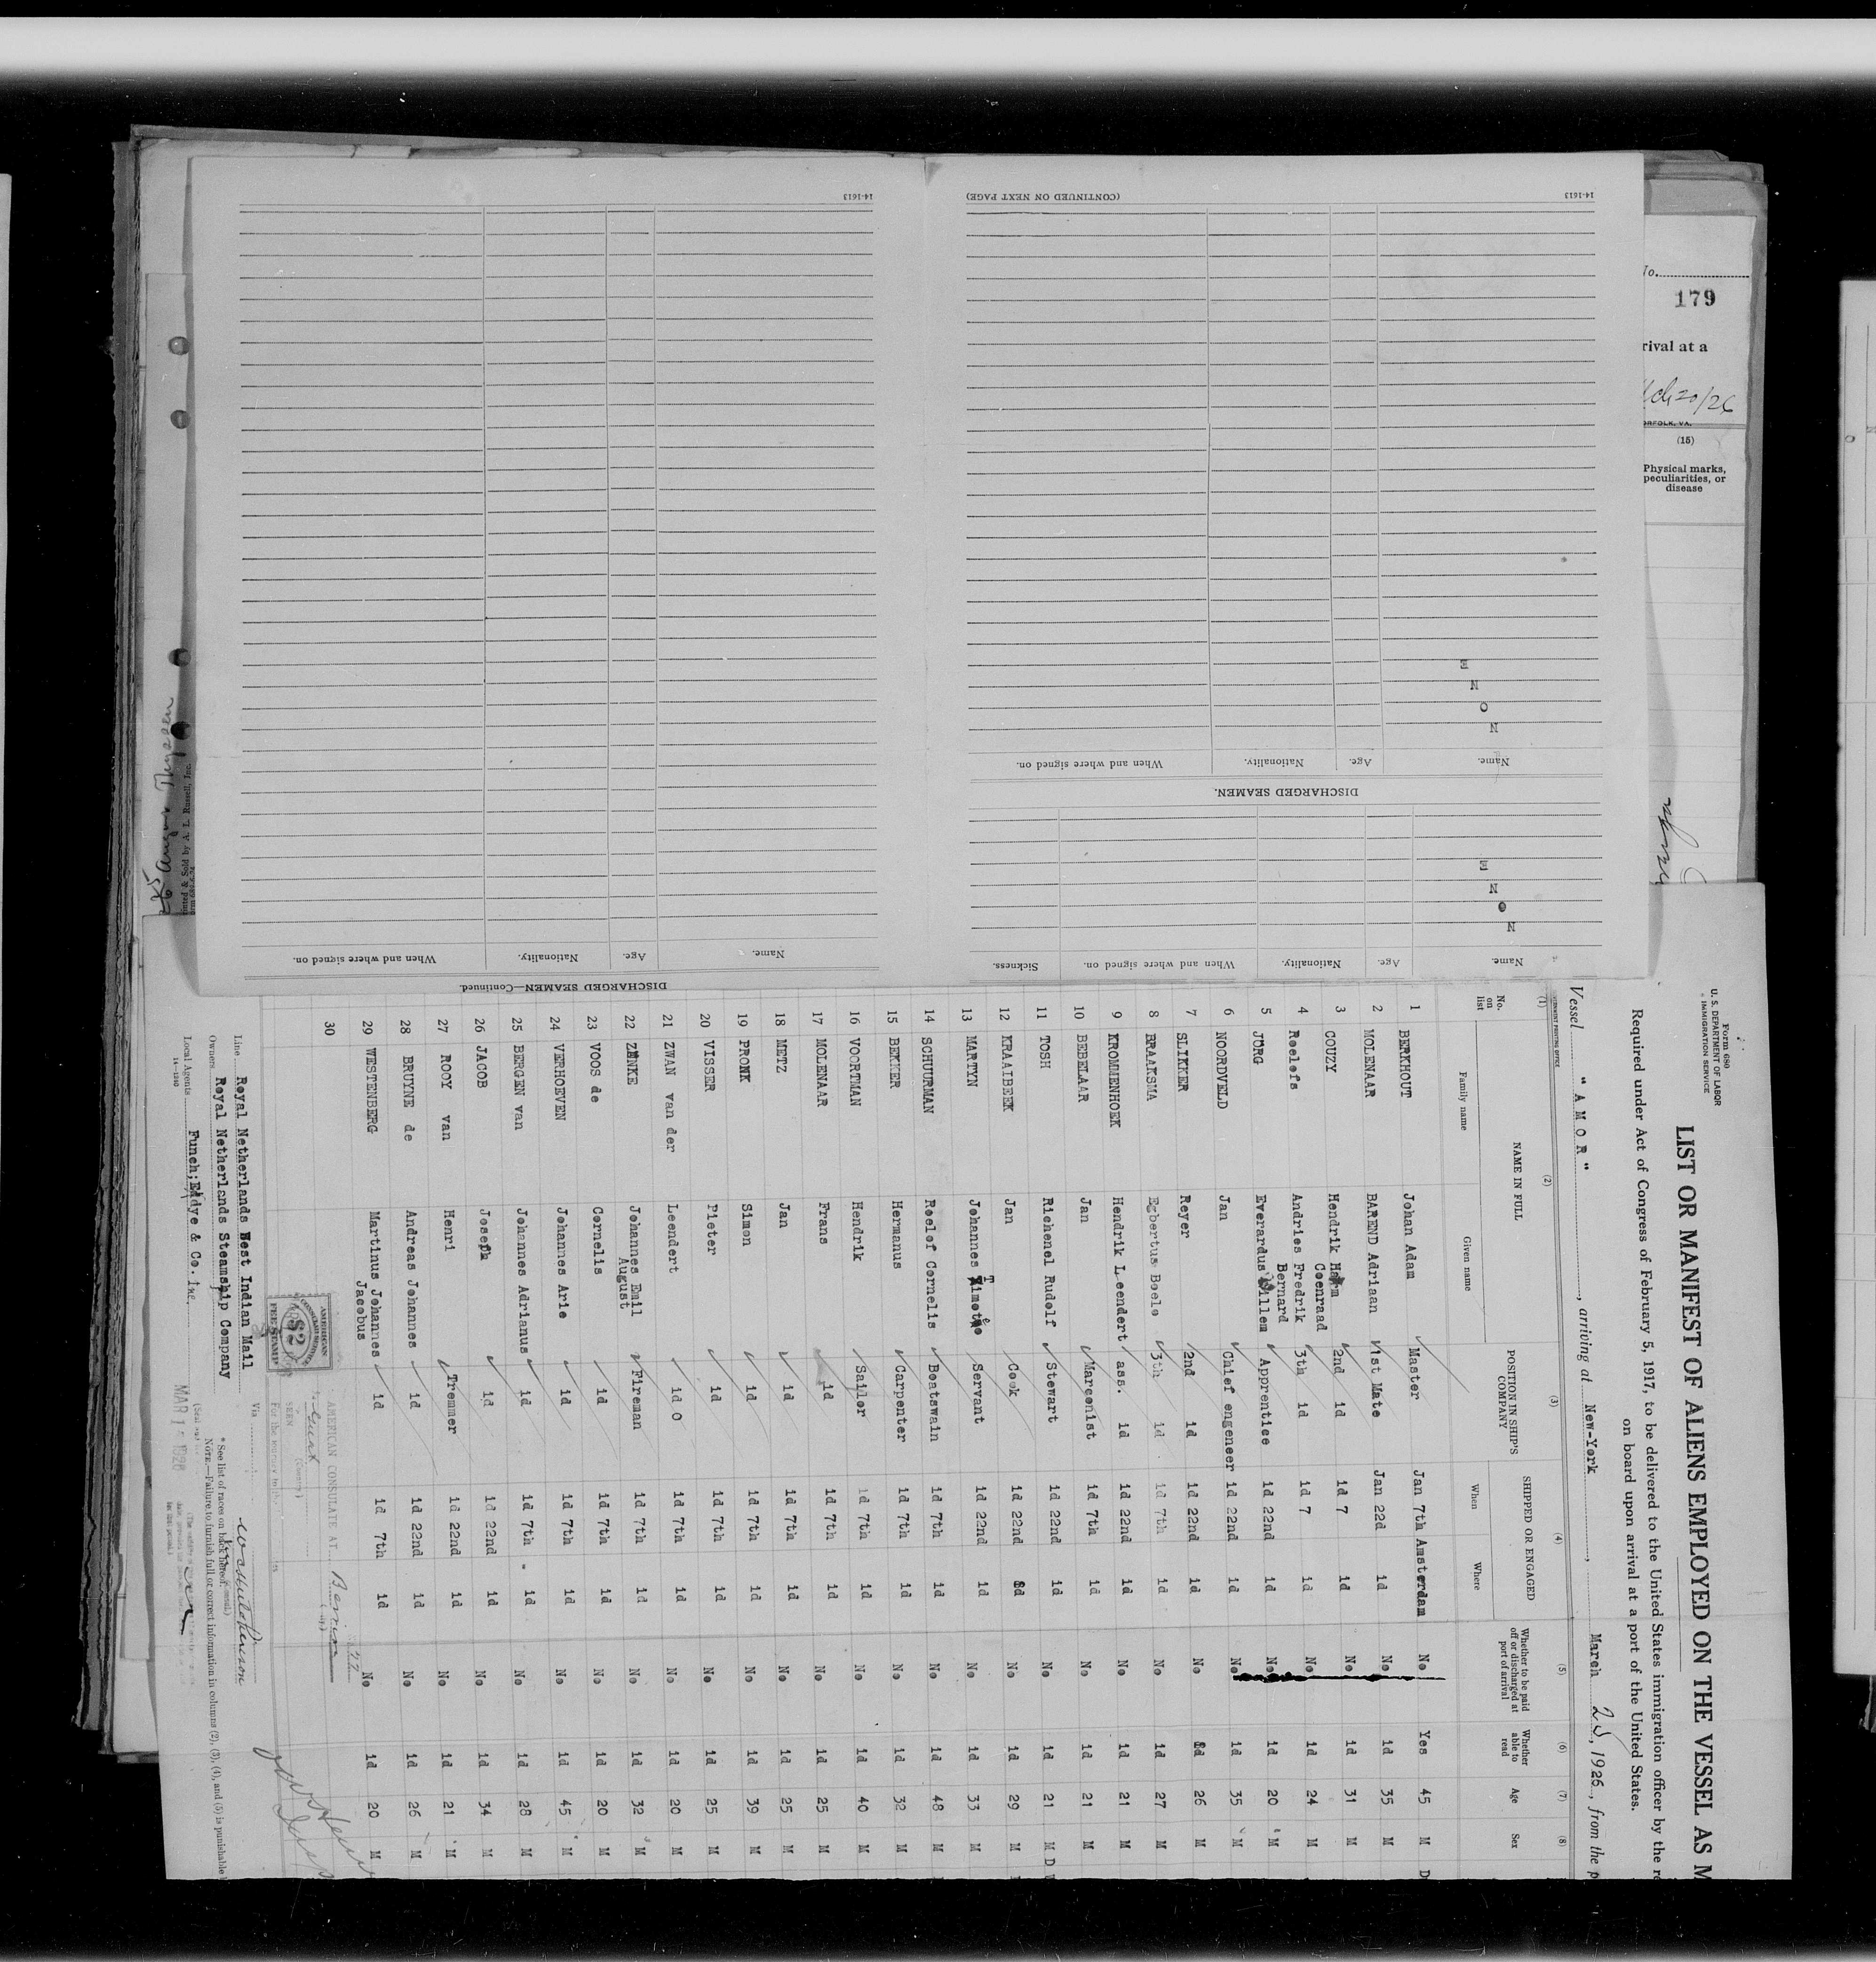 Form 680
U. S. DEPARTMENT OF LABOR
IMMIGRATION SERVICE
LIST OR MANIFEST OF ALIENS EMPLOYED ON THE VESSEL AS M
Required under Act of Congress of February 5, 1917, to be delivered to the United States immigration officer by the re
on board upon arrival at a port of the United States.
Vessel "AMOR", arriving at New-York, March 25, 1926, from the p
(1) (2) (3) (4) (5) (6) (7) (8)
No. on list NAME IN FULL POSITION IN SHIP'S COMPANY SHIPPED OR ENGAGED Whether to be paid off or discharged at port of arrival Whether able to read Age Sex
Family name Given name When Where
1 BERKHOUT Johan Adam Master Jan 7th Amsterdam No Yes 45 M D
2 MOLENAAR BAREND Adriaan 1st Mate Jan 22d id No id 35 M
3 COUZY Hendrik Harm Coenraad 2nd id id 7 id No id 31 M
4 Roelofs Andries Fredrik Bernard 3th id id 7 id No id 24 M
5 JURG Everardus Willem Apprentice id 22nd id No id 20 M
6 NOORDVELD Jan Chief engeneer id 22nd id No id 35 M
7 SLIKKER Reyer 2nd id id 22nd id No id 26 M
8 BRAAKSMA Egbertus Boele 3th id id 7th id No id 27 M
9 KROMMENHOEK Hendrik Leendert ass. id id 22nd id No id 21 M
10 BEBELAAR Jan Marconist id 7th id No id 21 M
11 TOSH Richenel Rudolf Stewart id 22nd id No id 21 M D
12 KRAAIBEEK Jan Cook id 22nd id No id 29 M
13 MARTYN Johannes Servant id 22nd id No id 33 M
14 SCHUURMAN Roelof Cornelis Boatswain id 7th id No id 48 M
15 BEKKER Hermanus Carpenter id 7th id No id 32 M
16 VOORTMAN Hendrik Sailor id 7th id No id 40 M
17 MOLENAAR Frans id id 7th id No id 25 M
18 METZ Jan id id 7th id No id 25 M
19 PRONK Simon id id 7th id No id 39 M
20 VISSER Pieter id id 7th id No id 25 M
21 ZWAN van der Leendert id O id 7th id No id 20 M
22 ZENKE Johannes Emil August Fireman id 7th id No id 32 M
23 VOOS de Cornelis id id 7th id No id 20 M
24 VERHOEVEN Johannes Arie id id 7th id No id 45 M
25 BERGEN van Johannes Adrianus id id 7th id No id 28 M
26 JACOB Joseph id id 22nd id No id 34 M
27 ROOY van Henri Tremmer id 22nd id No id 21 M
28 BRUYNE de Andreas Johannes id id 22nd id No id 26 M
29 WESTENBERG Martinus Johannes Jacobus id id 7th id No id 20 M
30
AMERICAN CONSULATE AT
(Country)
SEEN
AMERICAN CONSULAR SERVICE
$2
FEE STAMP
Line Royal Netherlands West Indian Mail Via
Owners Royal Netherlands Steamship Company
Local Agents Funch;Edye & Co. Inc.
MAR 1
* See list of races on back hereof.
NOTE.—Failure to furnish full or correct information in columns (2), (3), (4), and (5) is punishable
DISCHARGED SEAMEN—Continued.
Name. Age. Nationality. When and where signed on.
14-1613
Name. Age. Nationality. When and where signed on. Sickness.
N
O
N
E
DISCHARGED SEAMEN.
Name. Age. Nationality. When and where signed on.
N
O
N
E
(CONTINUED ON NEXT PAGE)
14-1613
No.
179
rival at a
20/26
NORFOLK, VA.
(15)
Physical marks, peculiarities, or disease
Printed & Sold by A. L. Russell, Inc.